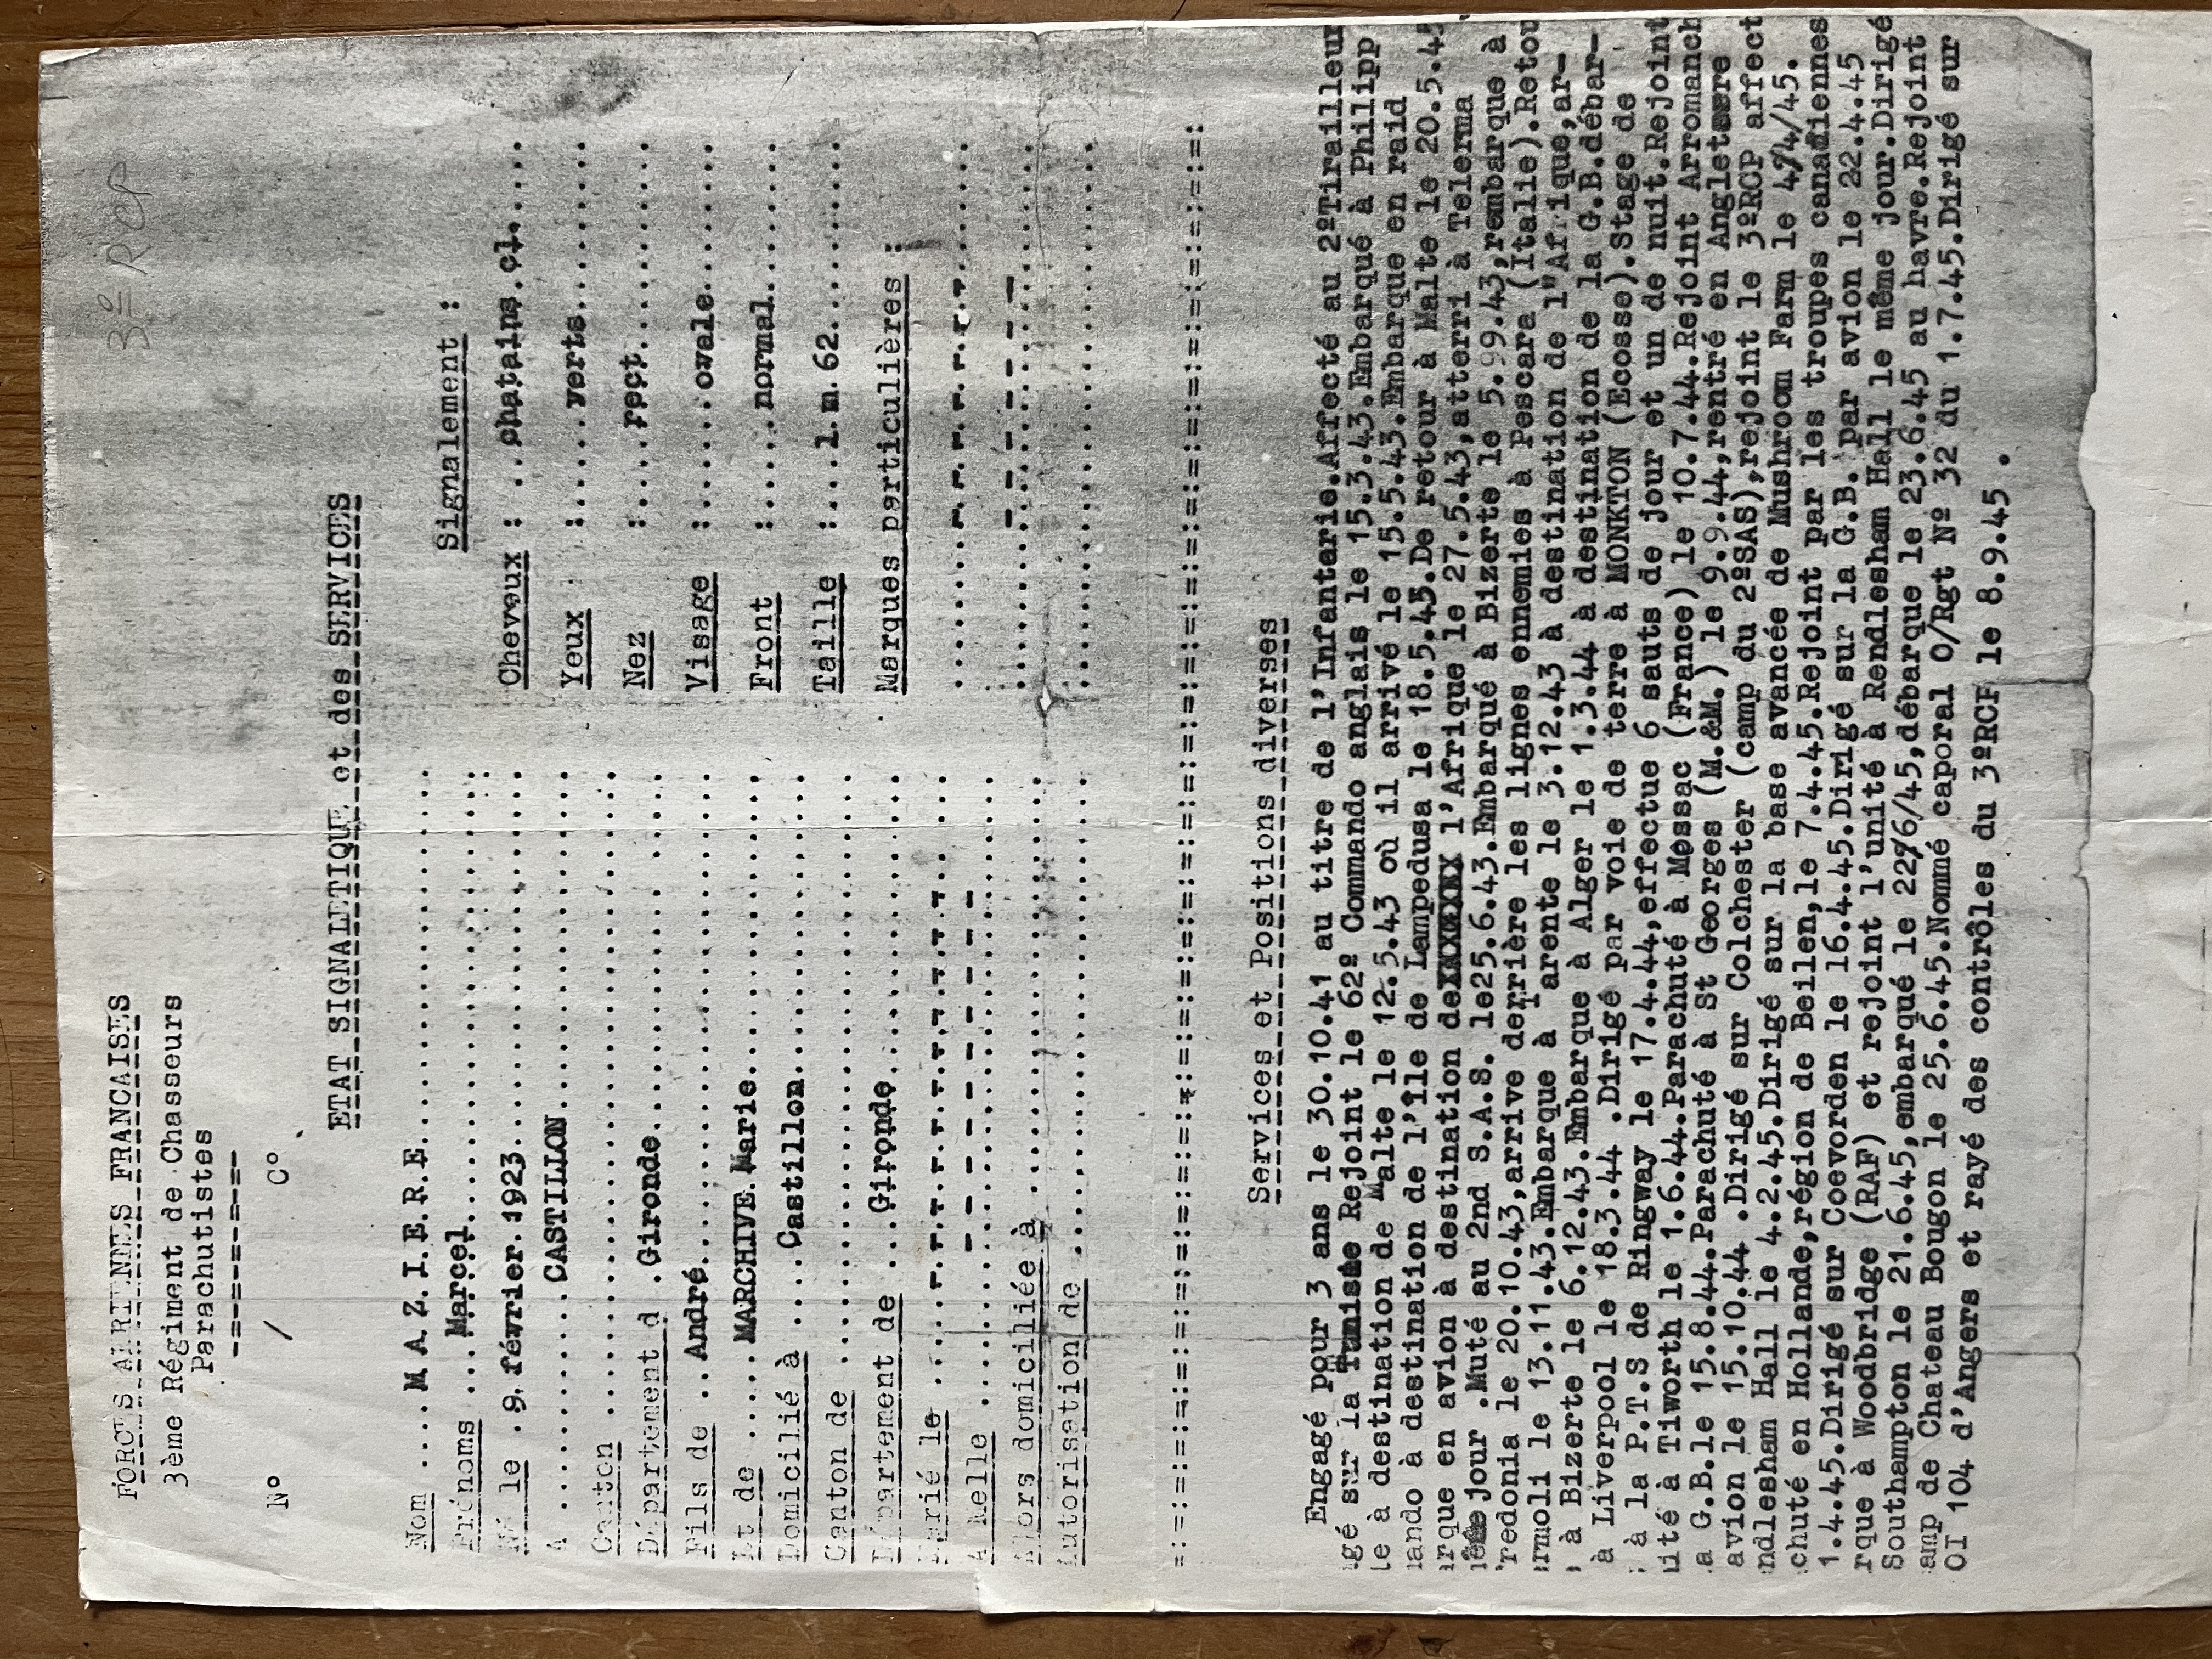 3º RCP
FORCES AERIENNES FRANCAISES
3ème Régiment de Chasseurs
Parachutistes
-=-=-=-=-=-=-
Nº / Cº
ETAT SIGNALETIQUE et des SERVICES
Nom ....M A Z.I.E.R.E
Prénoms ...Marcel
Né le .9.février.1923
A ........CASTILLON
Canton
Département d .Gironde
Fils de ..André
Et de ....MARCHIVE Marie
Domicilié à ....Castillon
Canton de
Département de ..Gironde
Marié le
A Melle
Alors domiciliée à
Autorisation de
Signalement :
Cheveux : ..chatains.cl.
Yeux :....verts
Nez :....rect
Visage :.....ovale
Front :.....normal
Taille :...1.m.62
Marques particulières :
Services et Positions diverses
Engagé pour 3 ans le 30.10.41 au titre de l'Infanterie.Affecté au 2ºTirailleur
gé sur la Tunisie Rejoint le 62º Commando anglais le 15.3.43.Embarqué à Philipp
le à destination de Malte le 12.5.43 où il arrivé le 15.5.43.Embarque en raid
mando à destination de l'Île de Lampedusa le 18.5.43.De retour à Malte le 20.5.4
rque en avion à destination de l'Afrique le 27.5.43,atterri à Telerma
même jour .Muté au 2nd S.A.S. le25.6.43.Embarqué à Bizerte le 5.99.43,rembarque à
redonia le 20.10.43,arrive derrière les lignes ennemies à Pescara (Italie).Retou
rmoli le 13.11.43.Embarque à arente le 3.12.43 à destination de l"Afrique,ar-
à Bizerte le 6.12.43.Embarque à Alger le 1.3.44 à destination de la G.B.débar-
à Liverpool le 18.3.44 .Dirigé par voie de terre à MONKTON (Ecosse).Stage de
à la P.T.S de Ringway le 17.4.44,effectue 6 sauts de jour et un de nuit.Rejoint
uité à Tiworth le 1.6.44.Parachuté à Messac (France) le 10.7.44.Rejoint Arromanch
a G.B.le 15.8.44.Parachuté à St Georges (M.&M.) le 9.9.44,rentré en Angleterre
avion le 15.10.44 .Dirigé sur Colchester (camp du 2ºSAS),rejoint le 3ºRCP affect
ndlesham Hall le 4.2.45.Dirigé sur la base avancée de Mushroom Farm le 4/4/45.
chuté en Hollande,région de Beilen,le 7.4.45.Rejoint par les troupes canadiennes
1.4.45.Dirigé sur Coevorden le 16.4.45.Dirigé sur la G.B. par avion le 22.4.45
rque à Woodbridge (RAF) et rejoint l'unité à Rendlesham Hall le même jour.Dirigé
Southampton le 21.6.45,embarqué le 22/6/45,débarque le 23.6.45 au havre.Rejoint
amp de Chateau Bougon le 25.6.45.Nommé caporal O/Rgt Nº 32 du 1.7.45.Dirigé sur
OI 104 d'Angers et rayé des contrôles du 3ºRCP le 8.9.45 .